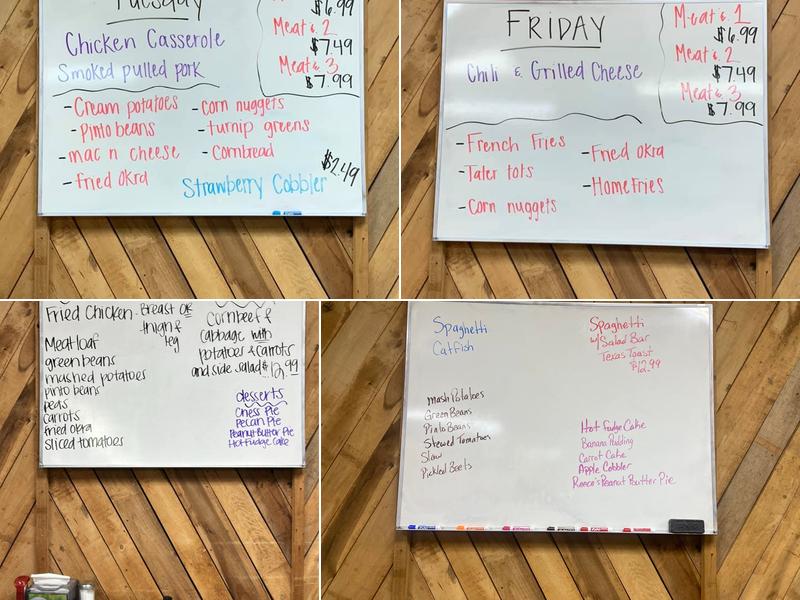 Tuesday
Chicken Casserole
Smoked pulled pork
$6.99
Meat & 2
$7.49
Meat & 3
$7.99
- Cream potatoes
- Pinto beans
- mac n cheese
- Fried Okra
- corn nuggets
- turnip greens
- Cornbread
$2.49
Strawberry Cobbler
FRIDAY
Chili & Grilled Cheese
Meat & 1
$6.99
Meat & 2
$7.49
Meat & 3
$7.99
- French Fries
- Tater tots
- Corn nuggets
- Fried Okra
- Home Fries
Fried Chicken - Breast OR
thigh &
leg
Meatloaf
green beans
mashed potatoes
pinto beans
peas
carrots
fried okra
sliced tomatoes
Cornbeef &
cabbage with
potatoes & carrots
and side salad $12.99
desserts
Chess Pie
Pecan Pie
Peanut Butter Pie
Hot Fudge Cake
Spaghetti
Catfish
Spaghetti
w/ Salad Bar
Texas Toast
$12.99
Mash Potatoes
Green Beans
Pinto Beans
Stewed Tomatoes
Slaw
Pickled Beets
Hot Fudge Cake
Banana Pudding
Carrot Cake
Apple Cobbler
Reece's Peanut Butter Pie